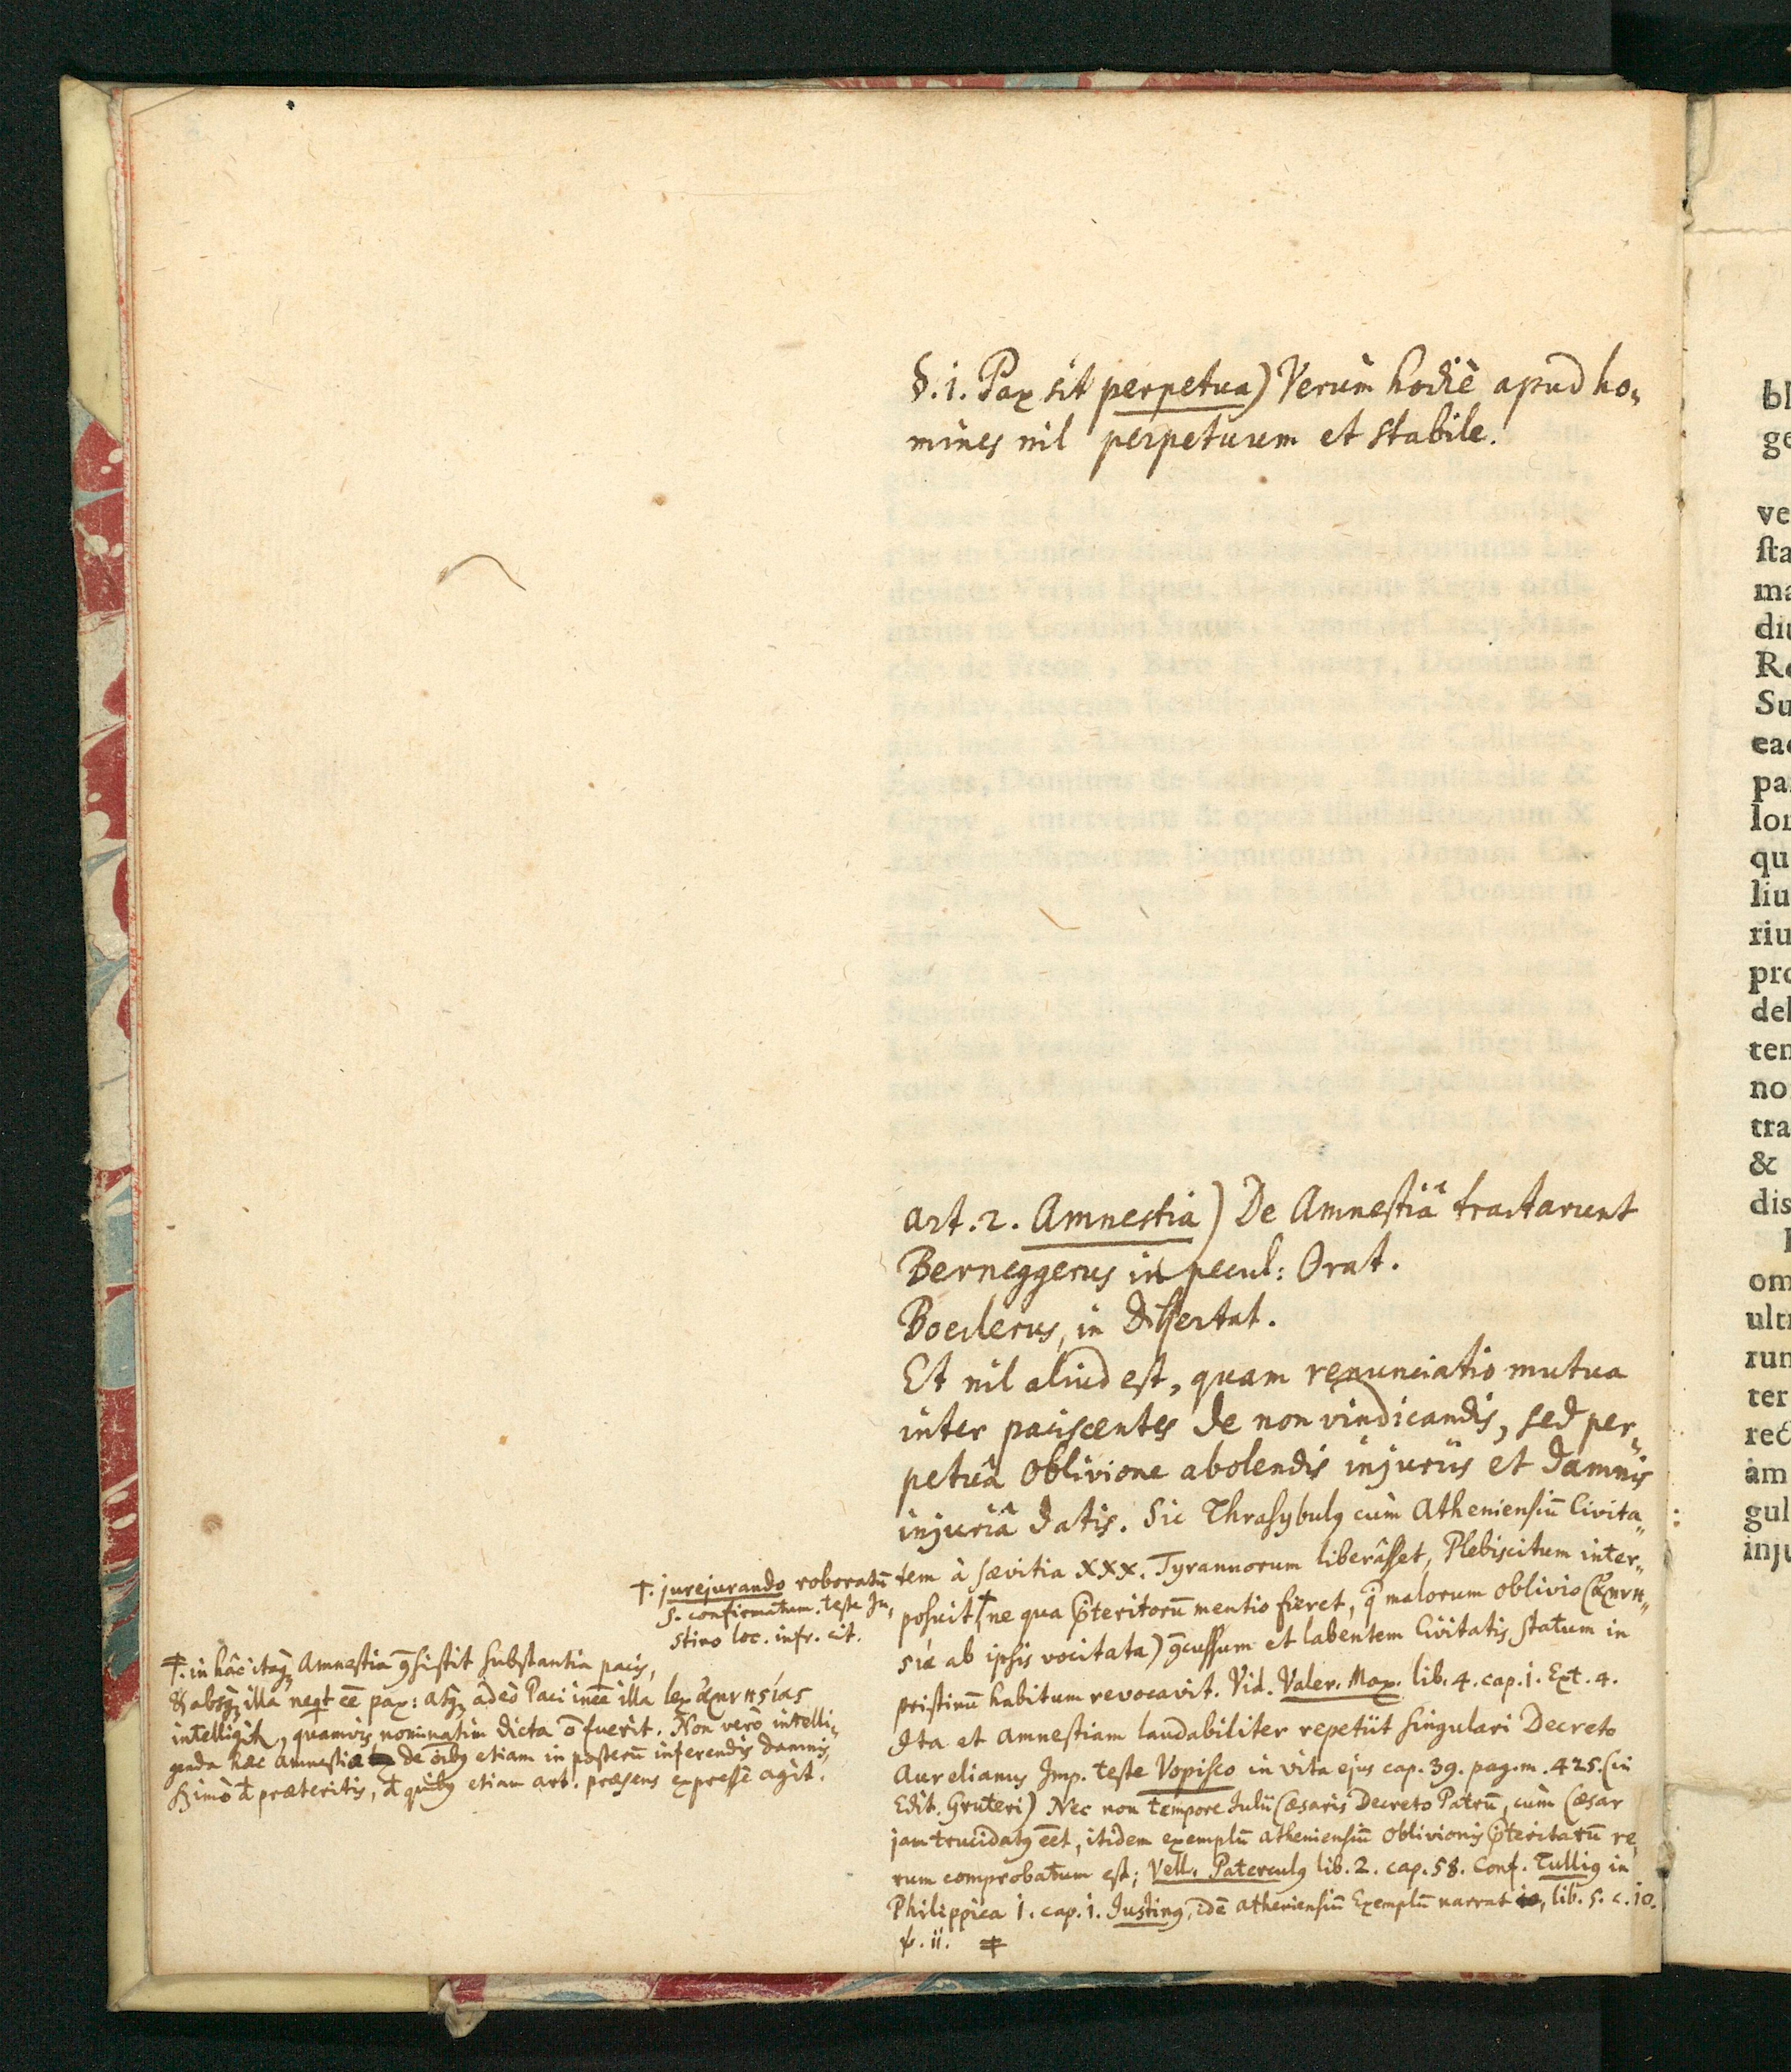 §. 1. Pax sit perpetua) Verùm hodiè apud ho„
mines nil perpetuum et stabile.
art. 2. Amnestia) De Amnestiâ tractarunt
Berneggerus in pecul: Orat.
Boeclerus, in dissertat.
Et nil aliud est, quam renunciatio mutua
inter paciscentes de non vindicandis, sed per„
petuâ oblivione abolendis injuriis et damnis
injuriâ datis. Sic Thrasybulꝯ cùm Atheniensiū Civita„
tem à sævitia XXX. Tyrannorum liberâsset, Plebiscitum inter„
posuit † ne qua p̄teritorū mentio fieret, q̄ malorum oblivio (ἀμνη„
σία ab ipsis vocitata) ꝯcussum et labentem Civitatis statum in
pristinū habitum revocavit. Vid. Valer. Max. lib. 4. cap. 1. Ext. 4.
Ita et amnestiam laudabiliter repetiit singulari Decreto
Aurelianus Imp. teste Vopisco in vita ejus cap. 39. pag. m. 425. (in
Edit. Gruteri) Nec non tempore Julii Cæsaris Decreto Patrū, cùm Cæsar
jam trucidatꝯ eēt, itidem exemplū atheniensiū oblivionis p̄teritarū re„
rum comprobatum est; Vell. Paterculꝯ lib. 2. cap. 58. Conf. Tulliꝯ in
Philippica 1. cap. 1. Justinꝯ, idē atheniensiū Exemplū narrat lib. 5. c. 10.
℣. 11. ‡
†. jurejurando roboratū
s. confirmatum. teste Ju„
stino loc. infr. cit.
‡. in hâc itaqꝫ Amnestia ꝯsistit substantia pacis,
& absqꝫ illa neqt eē pax: atqꝫ adeò Paci ineē illa lex ἀμνησίας
intelligit, quamvis nominatim dicta ō fuerit. Non verò intelli„
genda hæc amnestia de oībꝯ etiam in posterū inferendis damnis,
s imò đ præteritis, đ quibꝯ etiam art. præsens expressè agit.
bl
ge
ve
ſta
ma
diu
Re
Su
ead
pa
lor
qu
liu
riu
pro
del
ten
no
tra
&
dis
om
ult
run
ter
rec
am
gul
inju